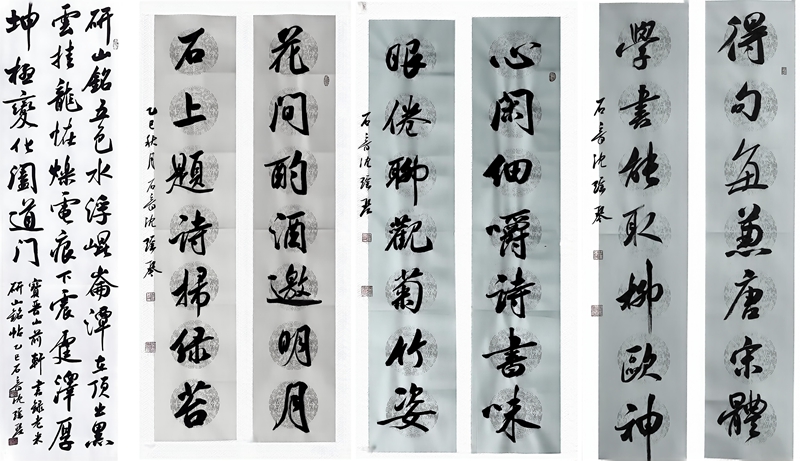 得句每兼唐宋體
學書能取柳歐神
石沈瑶琴
心闲细嚼诗書味
眼倦聊觀菊竹姿
石沈瑶琴
花间酌酒邀明月
石上題诗掃绿苔
乙巳秋月石沈瑶琴
研山銘五色水浮崐崘潭在頂出黑
雲挂龍怪爍電痕下震霆澤厚
坤極變化闔道门
寶晋山前軒書録老米
研山銘帖乙巳石沈瑶琴